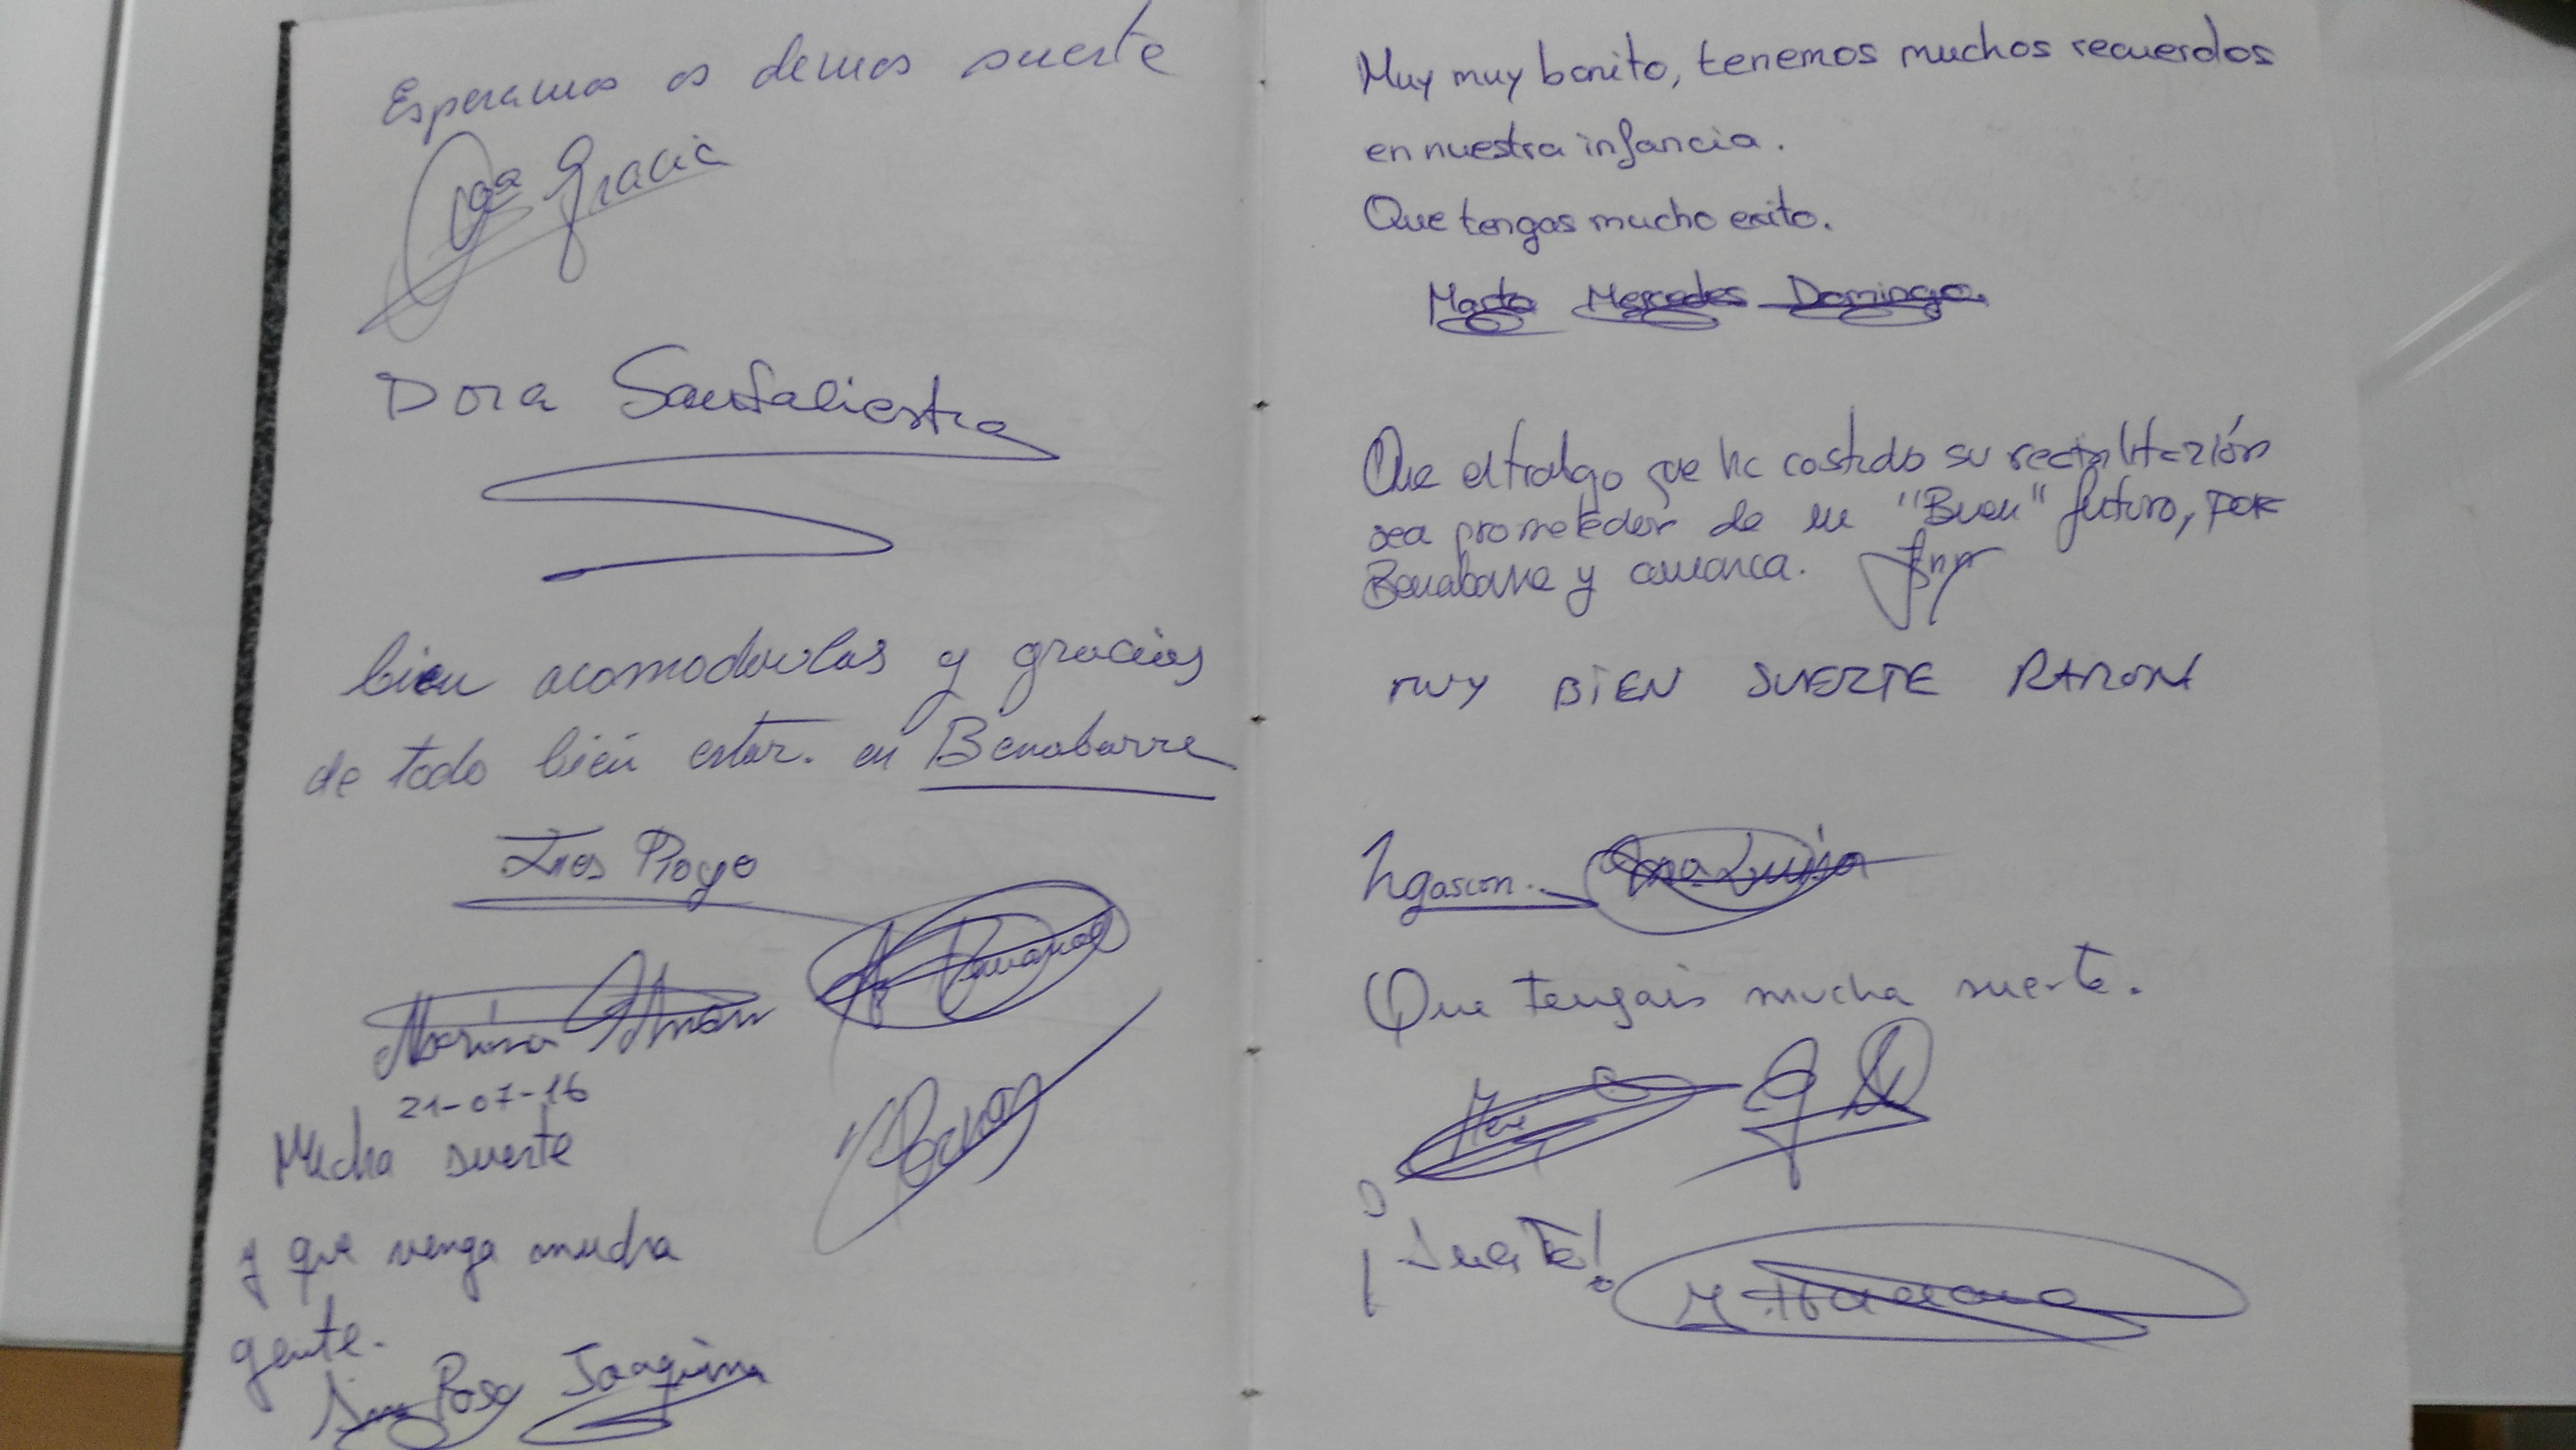 Esperamos os demos suerte
Gracia
Dora Santaliestra
bien acomodadas y gracias
de todo bien estar. en Benabarre
Ines Proyo
Marina
21-07-16
Mucha suerte
y que venga mucha
gente.
Rosa Joaquina
Muy muy bonito, tenemos muchos recuerdos
en nuestra infancia.
Que tengas mucho exito.
Marta Mercedes Domingo.
Que el trabajo que ha costado su rectabilitazión
sea prometedor de un "Buen" futuro, por
Benabarre y comarca.
MUY BIEN SUERTE RAMON
Ana Luisa
Que tengais mucha suerte.
¡Suerte!